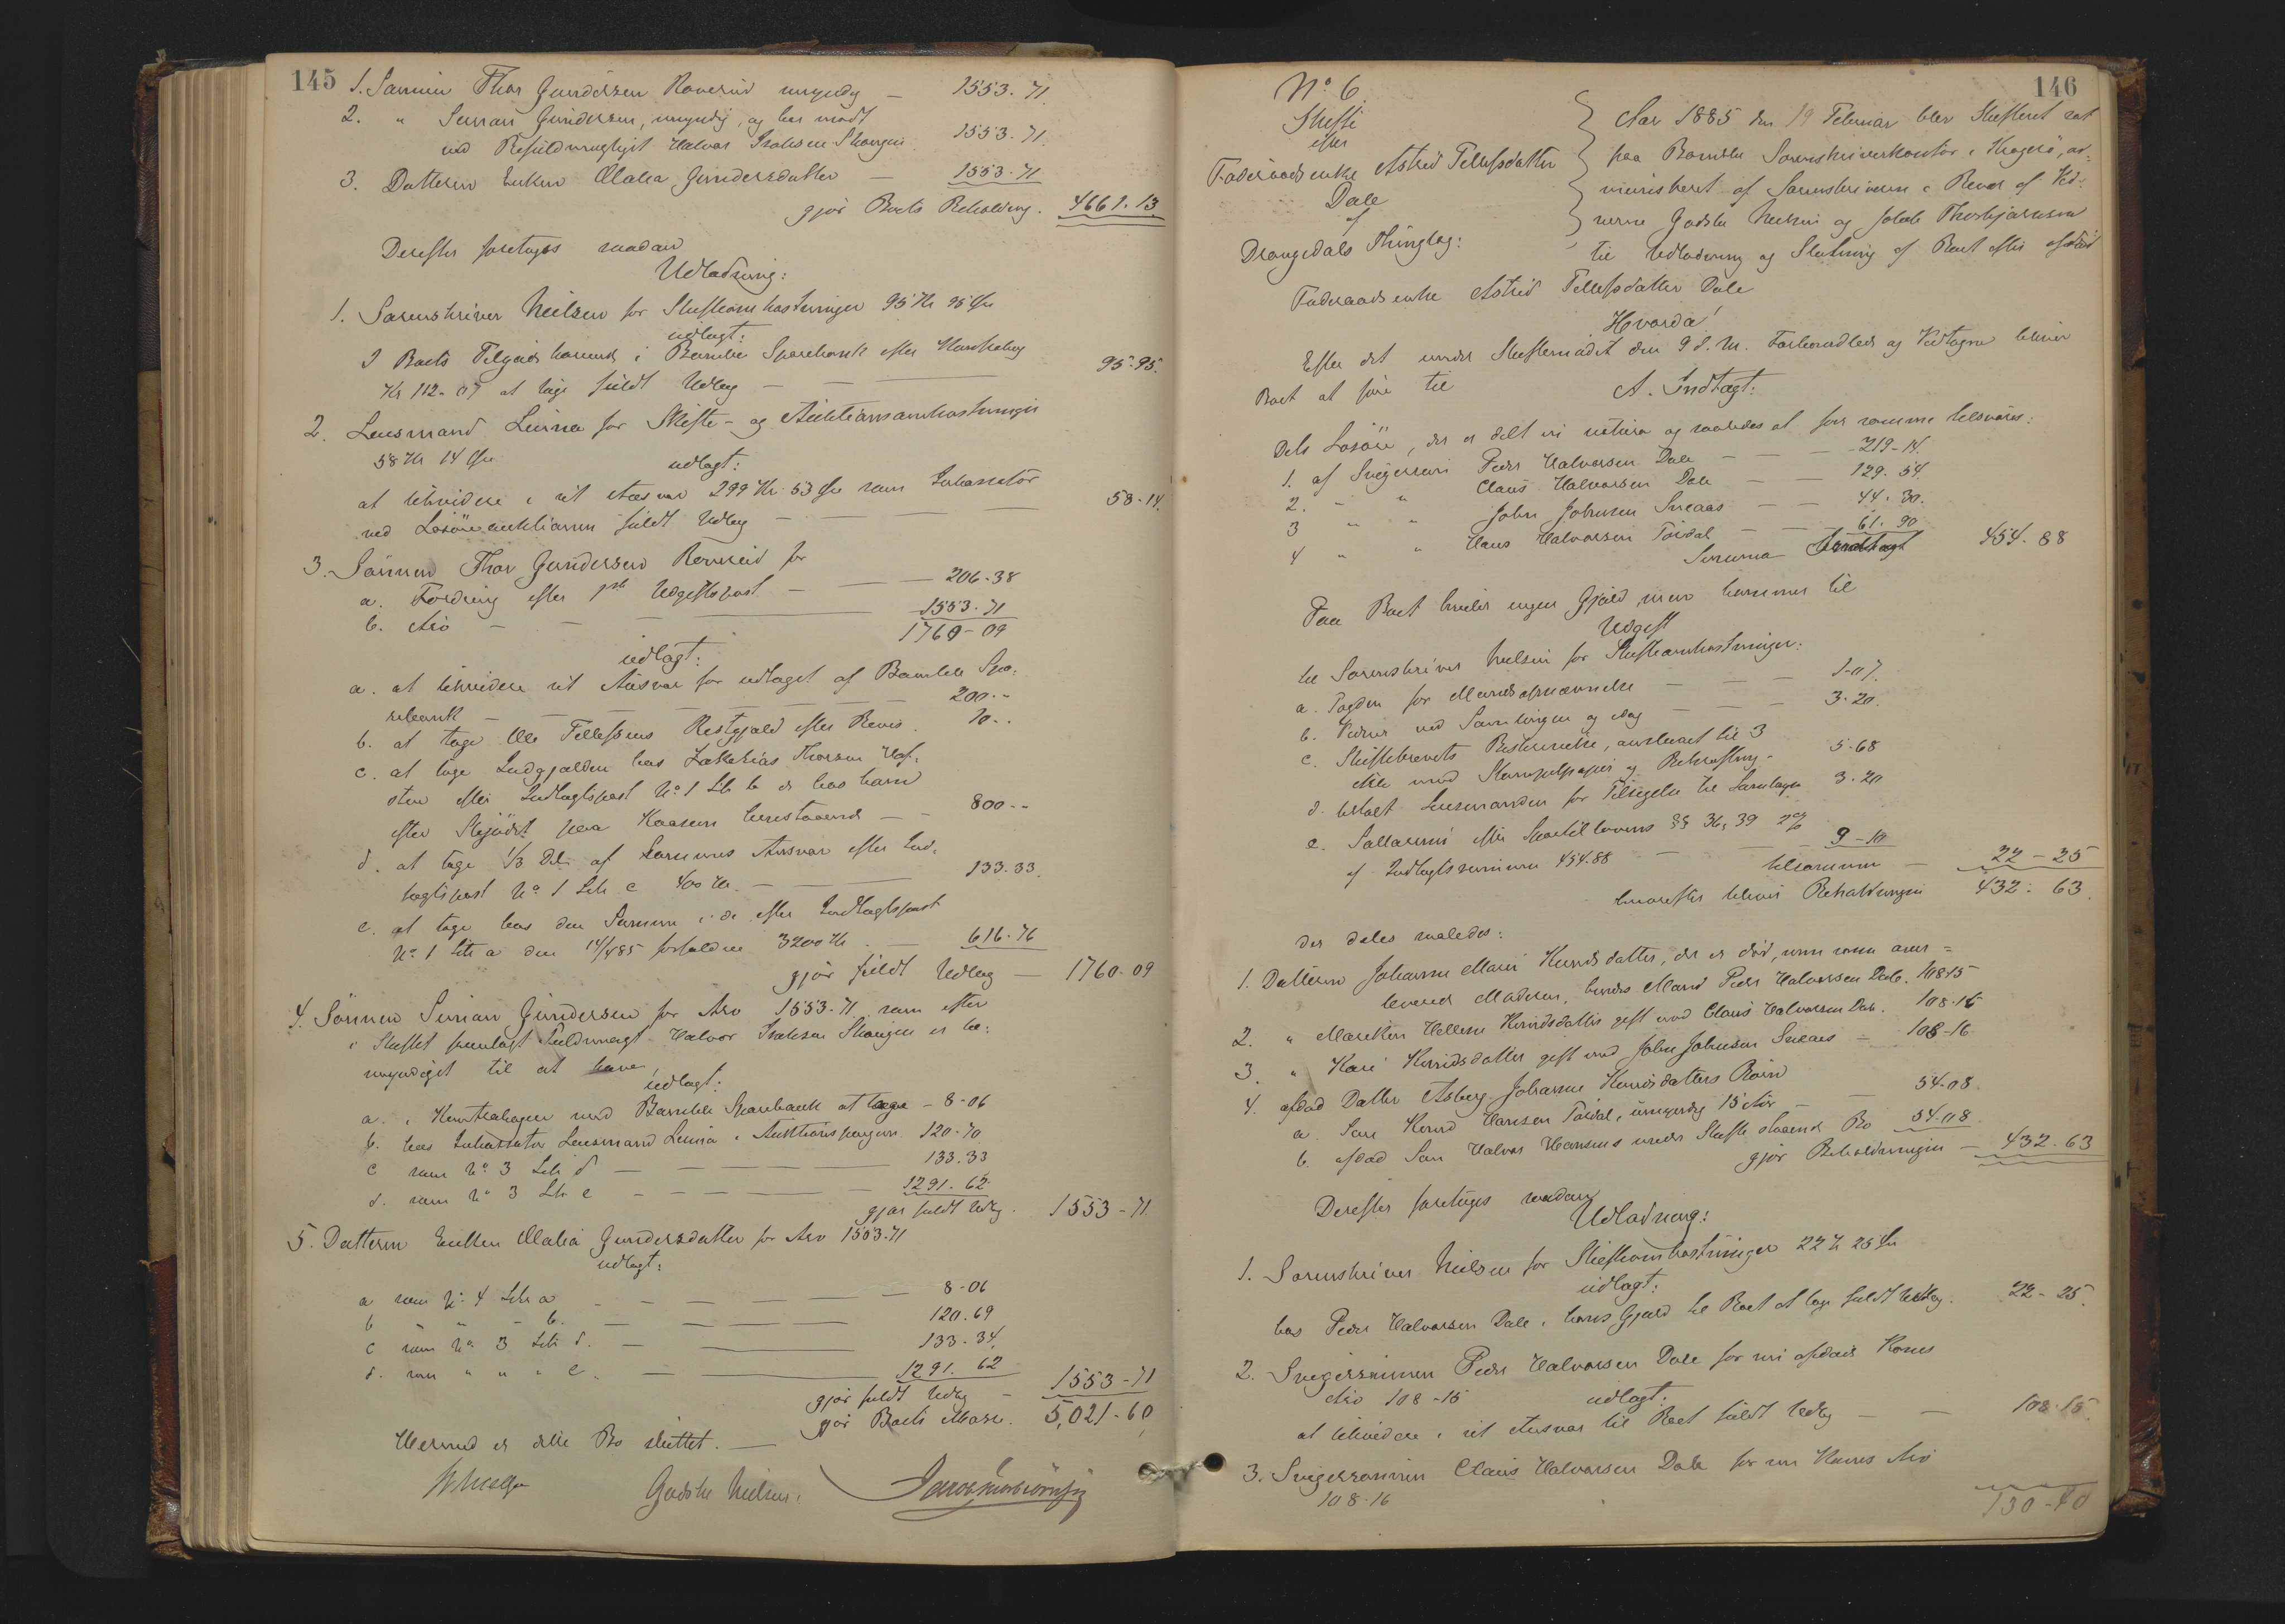 145
1. Sønnen Thor Gundersen Rønerud myndig — 1553. 71.
2. " Simon Gundersen, myndig, og har mødt
ved Befuldmægtiget Halvor Isaksen Skougen 1553. 71.
3. Datteren Enken Olalia Gundersdatter — 1553. 71
gjør Boets Beholdning. 4661. 13
Derefter foretoges saadan
Udlodning:
1. Sorenskriver Nielsen for Skifteomkostninger 95 Kr 95 Øre
udlagt:
I Boets Tilgodehavende i Bamble Sparebank efter Kontrabog
Kr 112. 07 at tage fuldt Udlæg — — 95. 95.
2. Lensmand Linna for Skifte- og Auktionsomkostninger
58 Kr 14 Øre
udlagt:
at tilsvidere i sit Ansvar 299 Kr. 53 Øre som Inkassator
ved Løsøreauktionen fuldt Udlæg — — 58-14.
3. Sønnen Thor Gundersen for
a. Fordring efter Udgiftspost — — 206-38
b. Arv — — — 1553. 71
1760-09
udlagt:
a. at tilsvidere sit Ansvar for udtaget af Bamble Spa-
rebank — — — 200--
b. at tage Ole Tellefsens Restgjæld efter Bevis. 10..
c. at tage Indgjælden hos Zakarias Thorsen
efter Indtægtspost No 1 Litr b der hos ham
efter Skjødet paa Kaasen henstaaende — — 800--
d. at tage 1/3 Del af Sønnens Ansvar efter Ind-
tægtspost No 1 Litr c 400 Kr. — — 133. 33.
e. at tage hos den Samme i de efter Indtægtspost
No 1 Litr a den 14/4 85 forfaldne 3200 Kr. — 616-76
gjør fuldt Udlæg — 1760. 09
4. Sønnen Simon Gundersen for Arv 1553. 71 som efter
i Skiftet fremlagt Fuldmagt Halvor Isaksen Skougen er be-
myndiget til at hæve,
udlagt:
a. i Kontrabogen med Bamble Sparebank at tage — 8-06
b. hos Inkassator Lensmand Linna i Auktionspengene 120-70
c som No 3 Litr d — — 133. 33
d. som No 3 Litr e — — — — 1291. 62
gjør fuldt Udlæg. 1553-71
5. Datteren Enken Olalia Gundersdatter for Arv 1553. 71
udlagt:
a som No 4 Litr a — — — 8-06
b " " - b. — — — 120. 69
c som No 3 Litr d. — — 133. 34
d. som " " " e. — — 1291. 62
gjør fuldt Udlæg — 1553-71
gjør Boets Masse. 5,021-60
Hermed er dette Bo sluttet. —
Godske Nielsen.
146
No 6
Skifte
efter
Føderaadsenke Astrid Tellefsdatter
Dale
af
Drangedals Thinglag:
Aar 1885 den 19 Februar blev Skifteret sat
paa Bamble Sorenskriverkontor i Kragerø, ad-
ministreret af Sorenskriveren i Bevær af Vid-
nerne Godske Nielsen og Jakob Thorbjørnsen
til Udlodning og Slutning af Boet efter afdød
Føderaadsenke Astrid Tellefsdatter Dale
Hvorda!
Efter det under Skiftemødet den 9 d. M. Forhandlede og Vedtagne bliver
Boet at føre til
A. Indtægt:
Dets Løsøre, der er delt in natura og saaledes at for samme tilsvares:
1. af Svigersøn Peder Halvorsen Dale — — — 219-14.
2. - " Claus Halvorsen Dale — — 129. 54
3 " " John Johnsen Sneaas — — 44. 30.
4 " " Hans Halvorsen Tørdal — — 61. 90
Summa Indtægt 454. 88
Paa Boet hviler ingen Gjæld, men kommer til
Udgift
til Sorenskriver Nielsen for Skifteomkostninger:
a. Dagen for Mandsopnævnelse — — 1-07.
b. Vidner ved Samlingen og idag — — — 3. 20.
c. Skiftebrevets Beskrivelse, anslaaet til 3
Ark med Stempelpapir og Bekræftning — 5-68
d. betalt Lensmanden for Tilsigelse til Samlingen 3. 20
e. Sallarium efter Sportellovens §§ 36, 39 2%
af Indtægtssummen 454.88 — — 9-10
tilsammen — 22-25
hvorefter bliver Beholdningen 432. 63.
der deles saaledes:
1. Datteren Johanne Marie Knudsdatter, der er død, men som over-
levende Moderen, hendes Mand Peder Halvorsen Dale. 108.15
2. " Marthen Hellene Knudsdatter gift med Claus Halvorsen Dale. 108. 16
3. " Kari Knudsdatter gift med John Johnsen Sneaas — 108-16
4. afdød Datter Asberg Johanne Knudsdatters Børn
a. Søn Knud Hansen Tørdal, umyndig 15 Aar — — 54.08
b. afdød Søn Halvor Hansens under Skifte staaende Bo 54.08
gjør Beholdningen — 432. 63
Derefter foretoges saadan
Udlodning:
1. Sorenskriver Nielsen for Skifteomkostninger 22 Kr 25 Øre
udlagt:
hos Peder Halvorsen Dale i hans Gjæld til Boet at tage fuldt Udlæg. 22-25.
2. Svigersønnen Peder Halvorsen Dale for sin afdøde Kones
Arv 108-15 udlagt:
at tilsvidere i sit Ansvar til Boet fuldt Udlæg — — 108. 15.
3. Svigersønnen Claus Halvorsen Dale for sin Kones Arv
108. 16
130-40